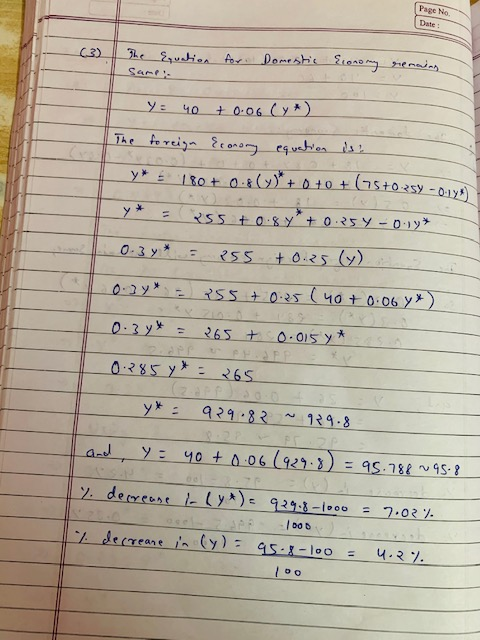 Page No.
Date :
(3) The Equation for Domestic Economy remains
same :-
Y = 40 + 0.06 (Y*)
The foreign Economy equation is :
Y* = 180 + 0.8(Y)* + 0 + 0 + (75 + 0.25Y - 0.1Y*)
Y* = 255 + 0.8Y* + 0.25Y - 0.1Y*
0.3Y* = 255 + 0.25 (Y)
0.3Y* = 255 + 0.25 (40 + 0.06 Y*)
0.3Y* = 265 + 0.015Y*
0.285 Y* = 265
Y* = 929.82 ~ 929.8
and, Y = 40 + 0.06 (929.8) = 95.788 ~ 95.8
% decrease in (Y*) = 929.8 - 1000 = 7.02 %.
1000
% decrease in (Y) = 95.8 - 100 = 4.2 %.
100